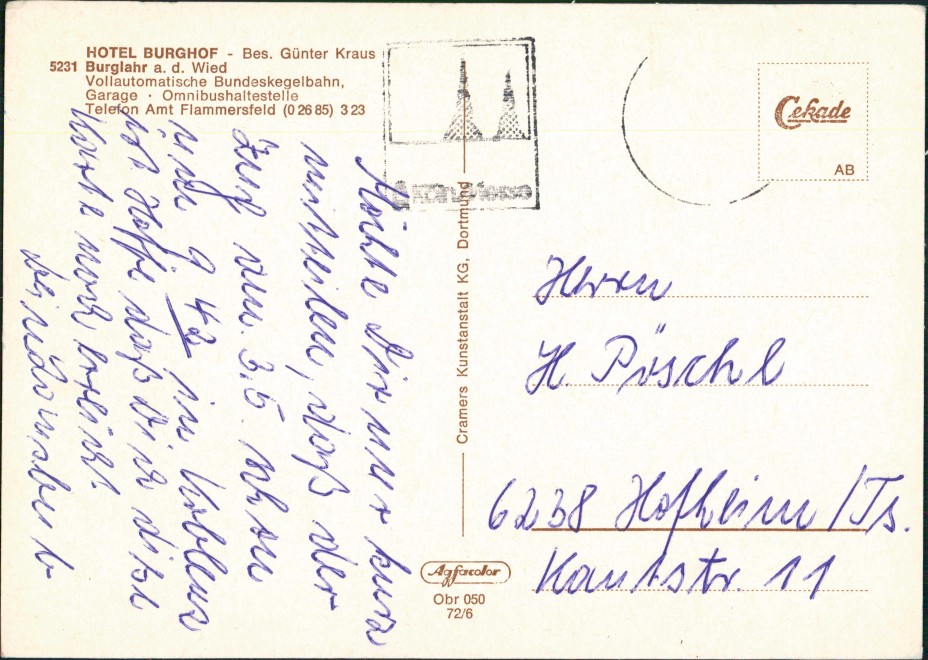 HOTEL BURGHOF - Bes. Günter Kraus
5231 Burglahr a. d. Wied
Vollautomatische Bundeskegelbahn,
Garage · Omnibushaltestelle
Telefon Amt Flammersfeld (0 26 85) 3 23
Möchte Dir nur kurz
mitteilen, daß der
Zug am 3.5. schon
um 9 42 in Koblenz
ist. Hoffe daß Dich diese
Karte noch erreicht.
Cramers Kunstanstalt KG, Dortmund
Cekade
AB
Herrn
H. Pöschl
6238 Hofheim/Ts.
Kantstr. 11
Agfacolor
Obr 050
72/6